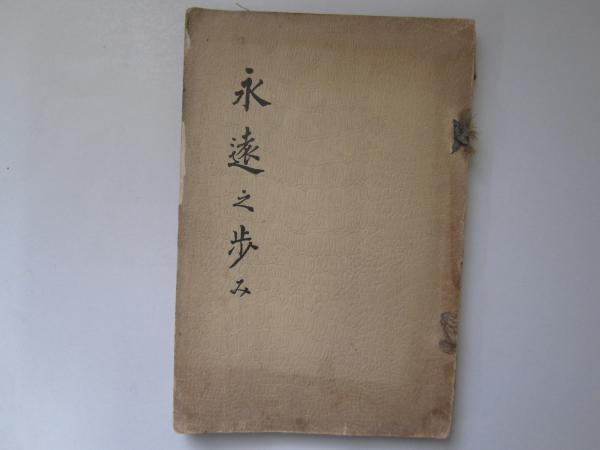 永遠之歩み